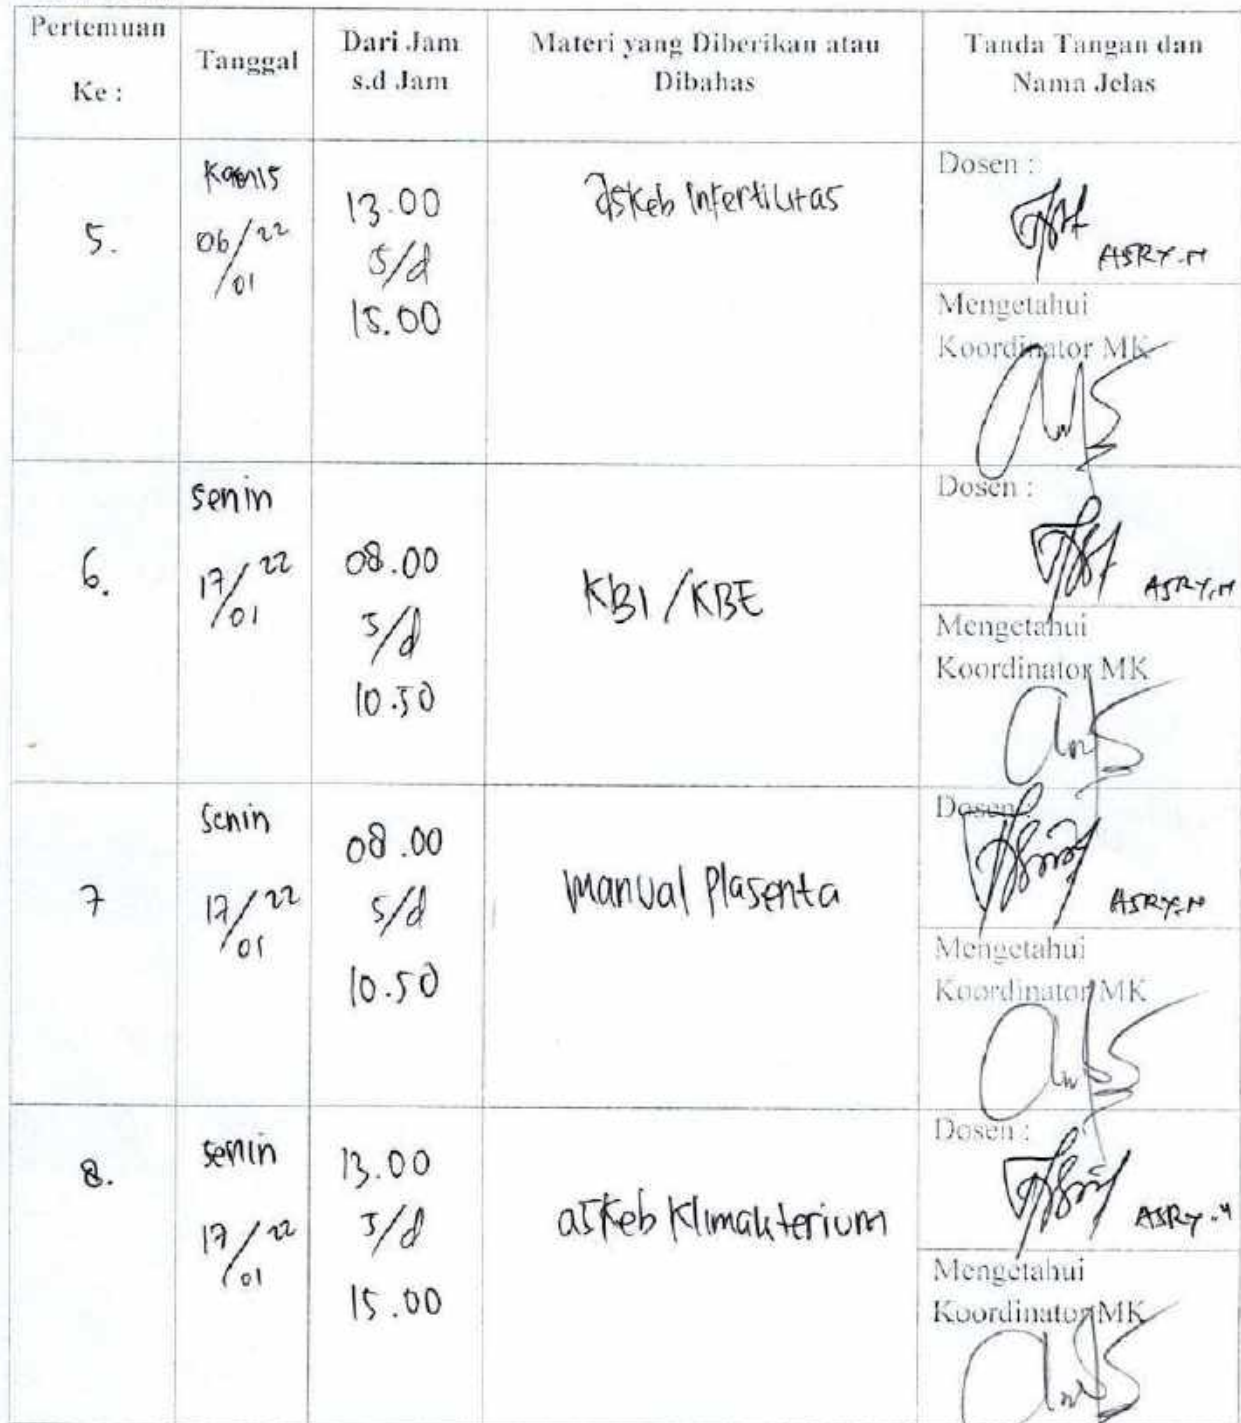 Pertemuan
Ke :
Tanggal
Dari Jam
s.d Jam
Materi yang Diberikan atau
Dibahas
Tanda Tangan dan
Nama Jelas
5.
Kamis
06/22
/01
13.00
s/d
15.00
askeb Infertilitas
Dosen :
ASRY.M
Mengetahui
Koordinator MK
6.
senin
17/22
/01
08.00
s/d
10.50
KBI/KBE
Dosen :
ASRY.M
Mengetahui
Koordinator MK
7
senin
17/22
/01
08.00
s/d
10.50
manual Plasenta
Dosen :
ASRY.M
Mengetahui
Koordinator MK
8.
senin
17/22
/01
13.00
s/d
15.00
askeb Klimakterium
Dosen :
ASRY.M
Mengetahui
Koordinator MK